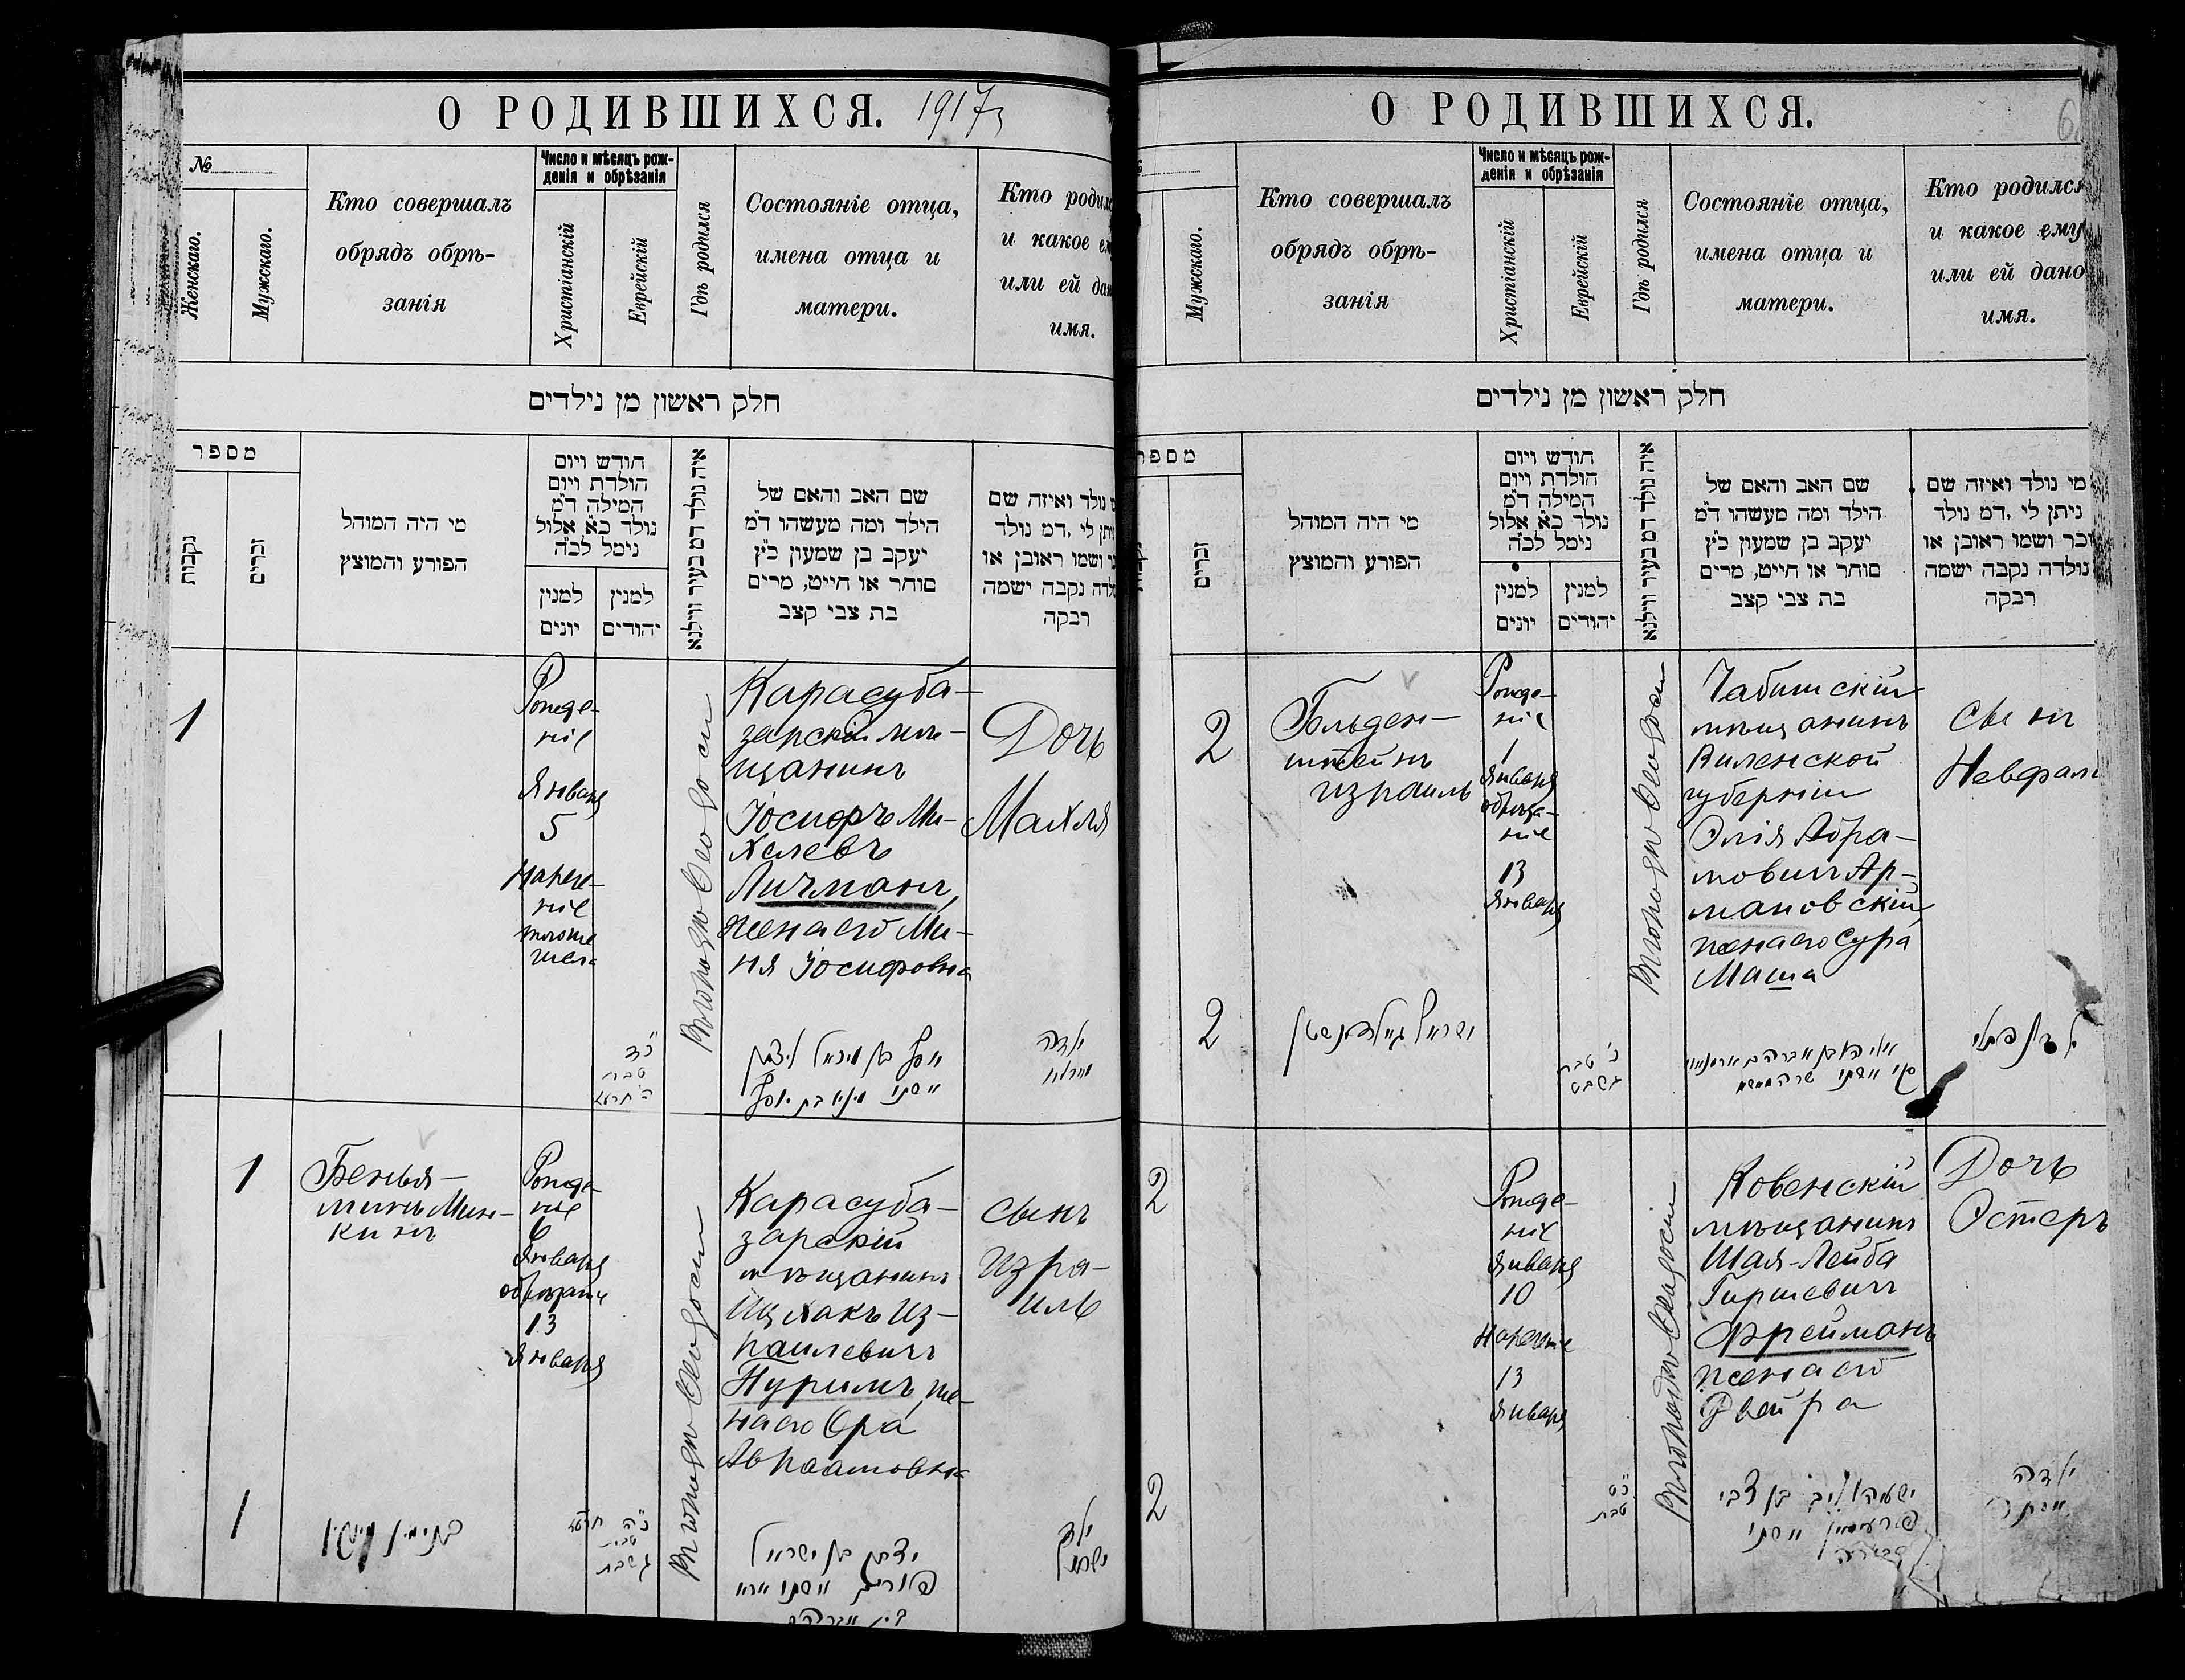 О РОДИВШИХСЯ. 1917
№
Женскаго.
Мужскаго.
Кто совершалъ
обрядъ обрѣ-
занія
Число и мѣсяцъ рож-
денія и обрѣзанія
Христіанскій
Еврейскій
Гдѣ родился
Состояніе отца,
имена отца и
матери.
Кто родилс
и какое ем
или ей дан
имя.
חלק ראשון מן נילדים
מספר
נקבות
זכרים
מי היה המוהל
הפורע והמוצץ
חודש ויום
הולדת ויום
המילה ד"מ
נולד כ"א אלול
נימל לכ"ה
למנין
יונים
למנין
יהודים
איה נולד דמ בעיר ווילנא
שם האב והאם של
הילד ומה מעשהו ד"מ
יעקב בן שמעון כ"ץ
סוחר או חייט, מרים
בת צבי קצב
נולד ואיזה שם
יתן לי, דמ נולד
ושמו ראובן או
לדה נקבה ישמה
רבקה
1
Рожде-
ніе
Января
5
Нарече-
ніе
тогоже
числа
Въ городѣ Ѳеодосіи
Карасуба-
зарскій мѣ-
щанинъ
Іосифъ Ми-
халевъ
Личманъ,
жена его Ми-
ня Іосифовна
Дочь
Махля
כ"ד
טבת
יוסף בן מיכאל ליצמן
אשתו מיניא בת יוסף
ילדה
1
Бенья-
минъ Мин-
кинъ
Рожде-
ніе
6
Января
обрѣзаніе
13
Января
Въ городѣ Ѳеодосіи
Карасуба-
зарскій
мѣщанинъ
Ицхакъ Из-
раилевичъ
Пуримъ, же-
на его Сра
Авраамовна
Сынъ
Изра-
иль
1
בנימין מינקין
כ"ה
טבת
יצחק בן ישראל
פורים אשתו שרא
בת אברהם
ילד
ישראל
О РОДИВШИХСЯ.
6
Мужскаго.
Кто совершалъ
обрядъ обрѣ-
занія
Число и мѣсяцъ рож-
денія и обрѣзанія
Христіанскій
Еврейскій
Гдѣ родился
Состояніе отца,
имена отца и
матери.
Кто родился
и какое ему
или ей дано
имя.
חלק ראשון מן נילדים
מספר
זכרים
מי היה המוהל
הפורע והמוצץ
חודש ויום
הולדת ויום
המילה ד"מ
נולד כ"א אלול
נימל לכ"ה
למנין
יונים
למנין
יהודים
איה נולד דמ בעיר ווילנא
שם האב והאם של
הילד ומה מעשהו ד"מ
יעקב בן שמעון כ"ץ
סוחר או חייט, מרים
בת צבי קצב
מי נולד ואיזה שם
ניתן לי, דמ נולד
זכר ושמו ראובן או
נולדה נקבה ישמה
רבקה
2
Гольден-
штейнъ
Израиль
Рожде-
ніе
1
Января
обрѣза-
ніе
13
Января
Въ городѣ Ѳеодосіи
мѣщанинъ
Виленской
губерніи
Элія Абра-
мовичъ Ар-
мановскій
жена его Сура
Маша
Сынъ
Нафтал
2
ישראל גולדענשטיין
טבת
ג שבט
אליהו בן אברהם
אשתו שרה מאשא
ילד נפתלי
2
Рожде-
ніе
Января
10
Нареченіе
13
Января
Въ городѣ Ѳеодосіи
Ковенскій
мѣщанинъ
Шая-Лейба
Гиршевичъ
Фрейманъ
жена его
Двейра
Дочь
Эстеръ
2
טבת
ישעיהו ליב בן צבי
פריימאן אשתו
ילדה
אסתר